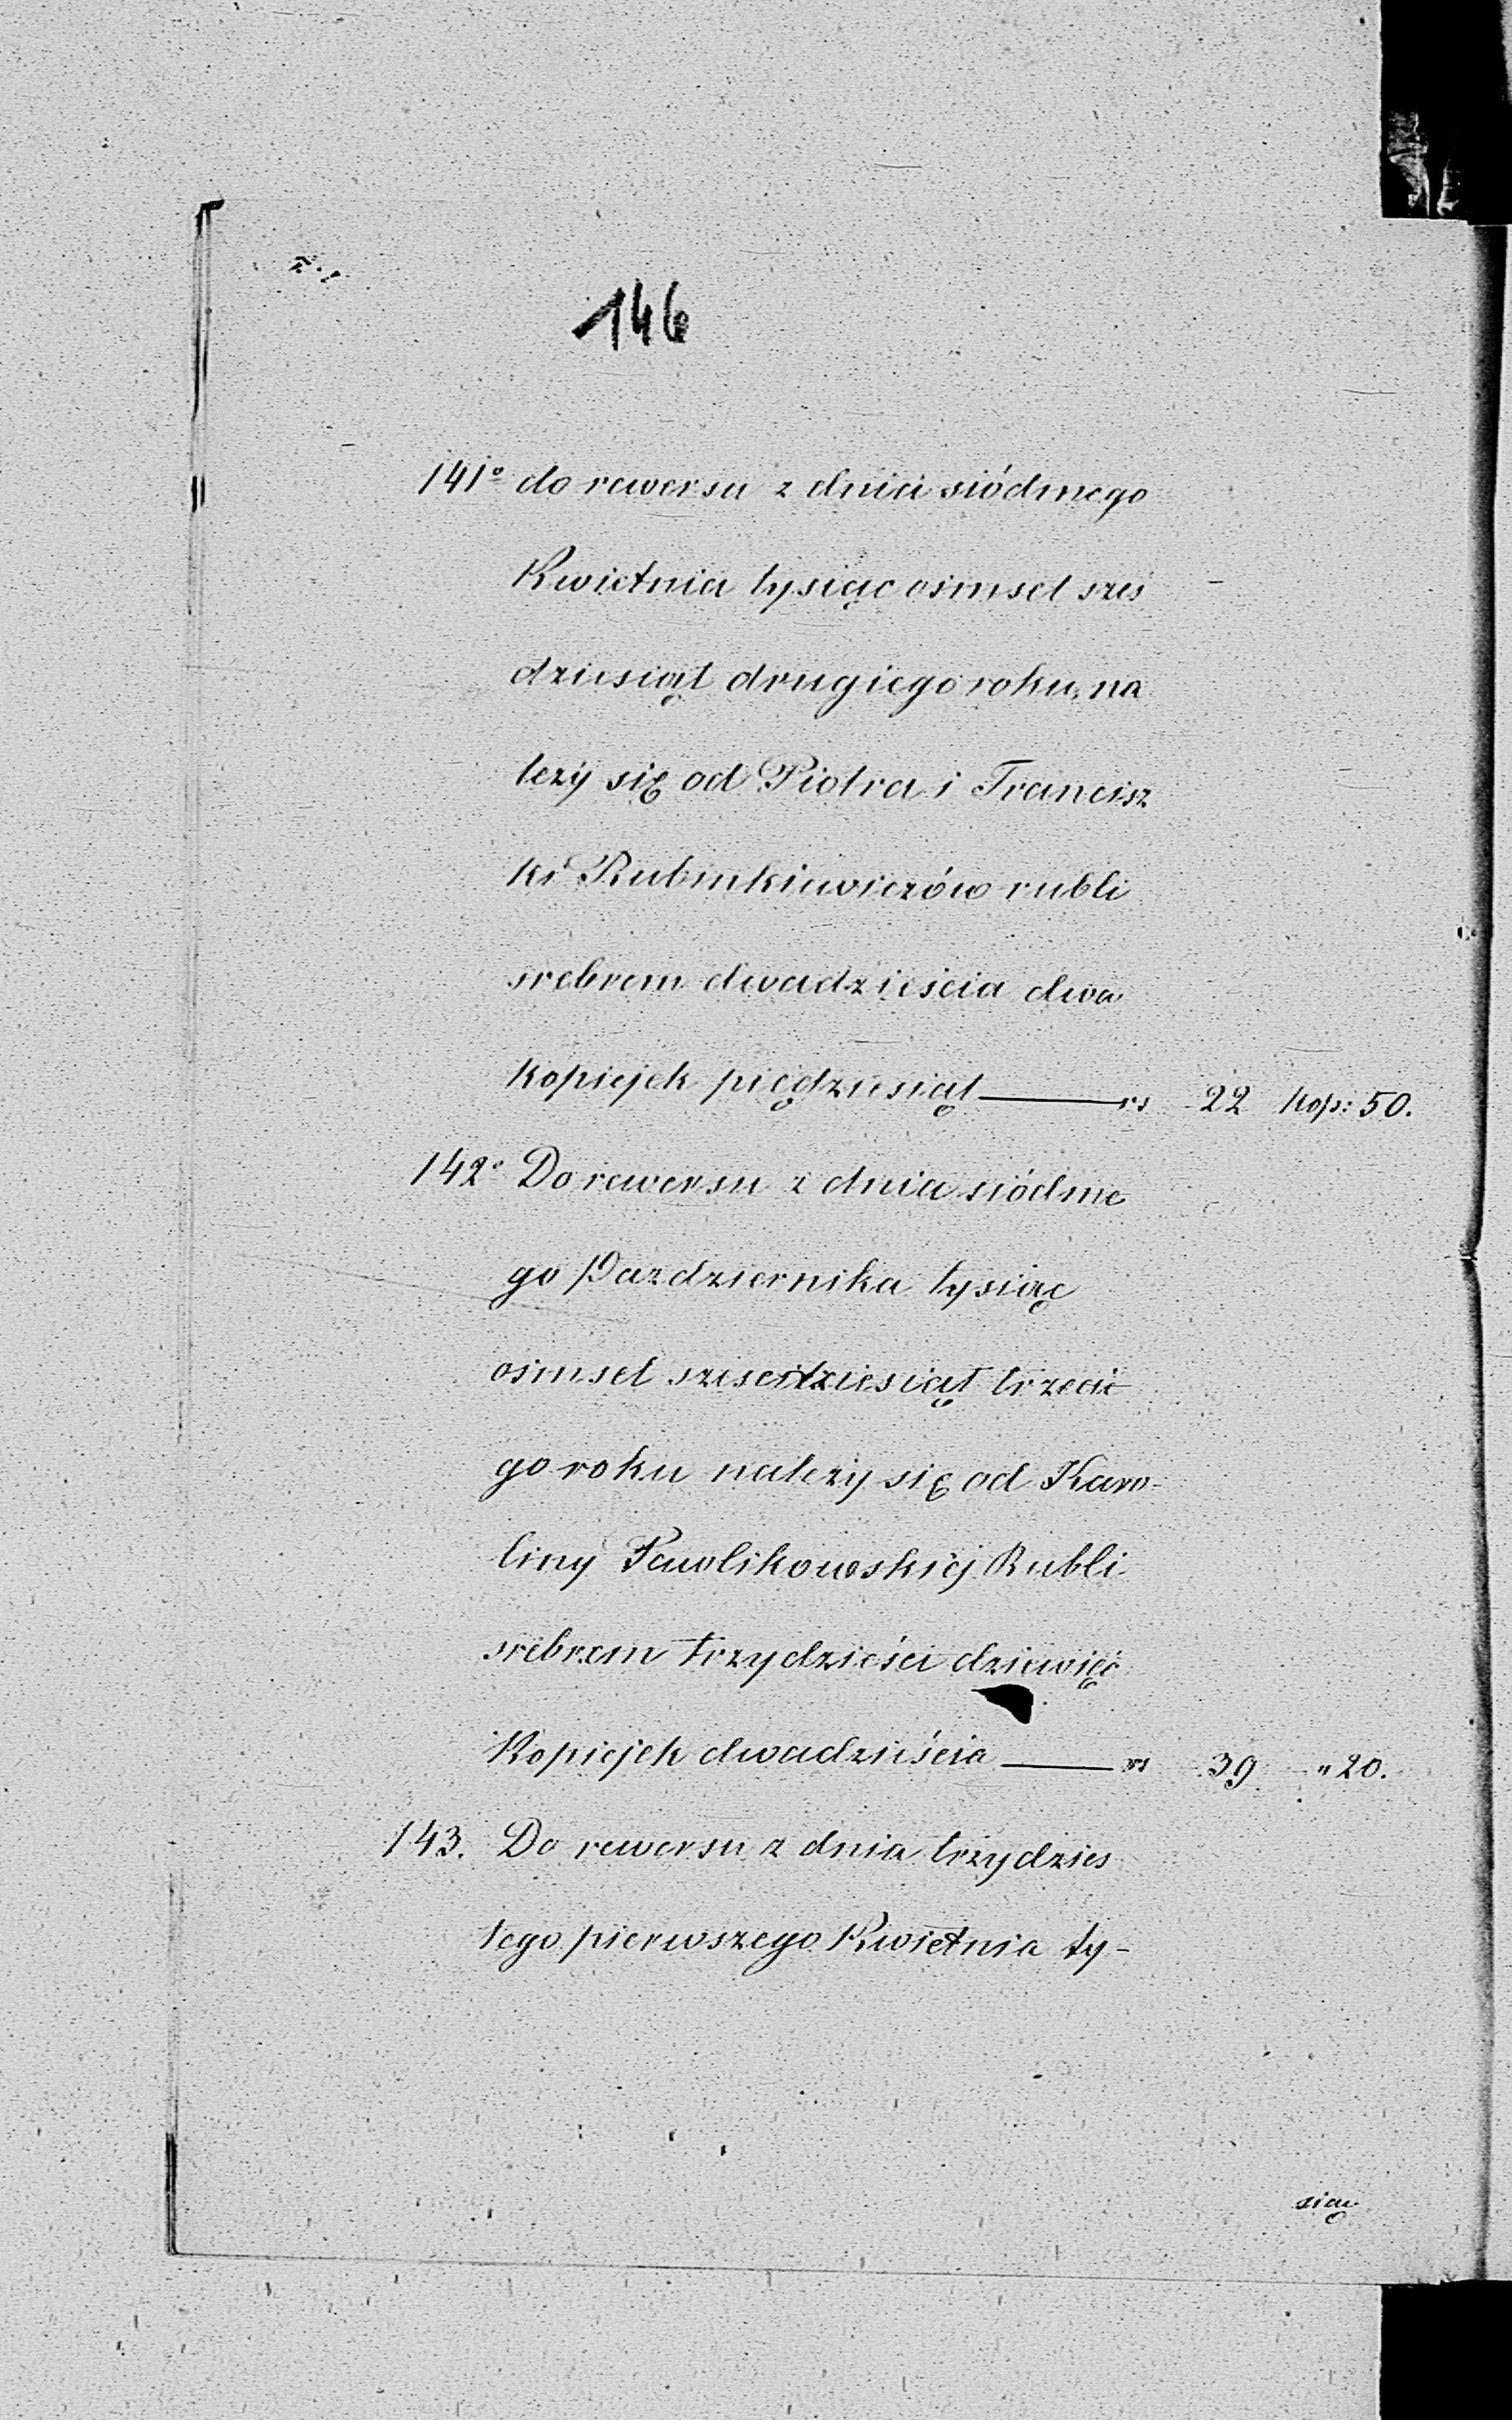 146
141° do rewersu z dnia siódmego
Kwietnia tysiąc ośmset szes
dziesiąt drugiego roku, na
leży się od Piotra i Francisz
ki Rubinkiewiczów rubli
srebrem dwadzieścia dwa
kopiejek piędziesiąt rs 22 kop: 50.
142° Do rewersu z dnia siódme
go Pazdziernika tysiąc
ośmset sześcdziesiąt trzecie
go roku należy się od Karo-
liny Pawlikowskiej Rubli
srebrem trzydzieści dziewięć
Kopiejek dwadzieścia rs 39 " 20.
143. Do rewersu z dnia trzydzies
tego pierwszego Kwietnia ty-
siąc